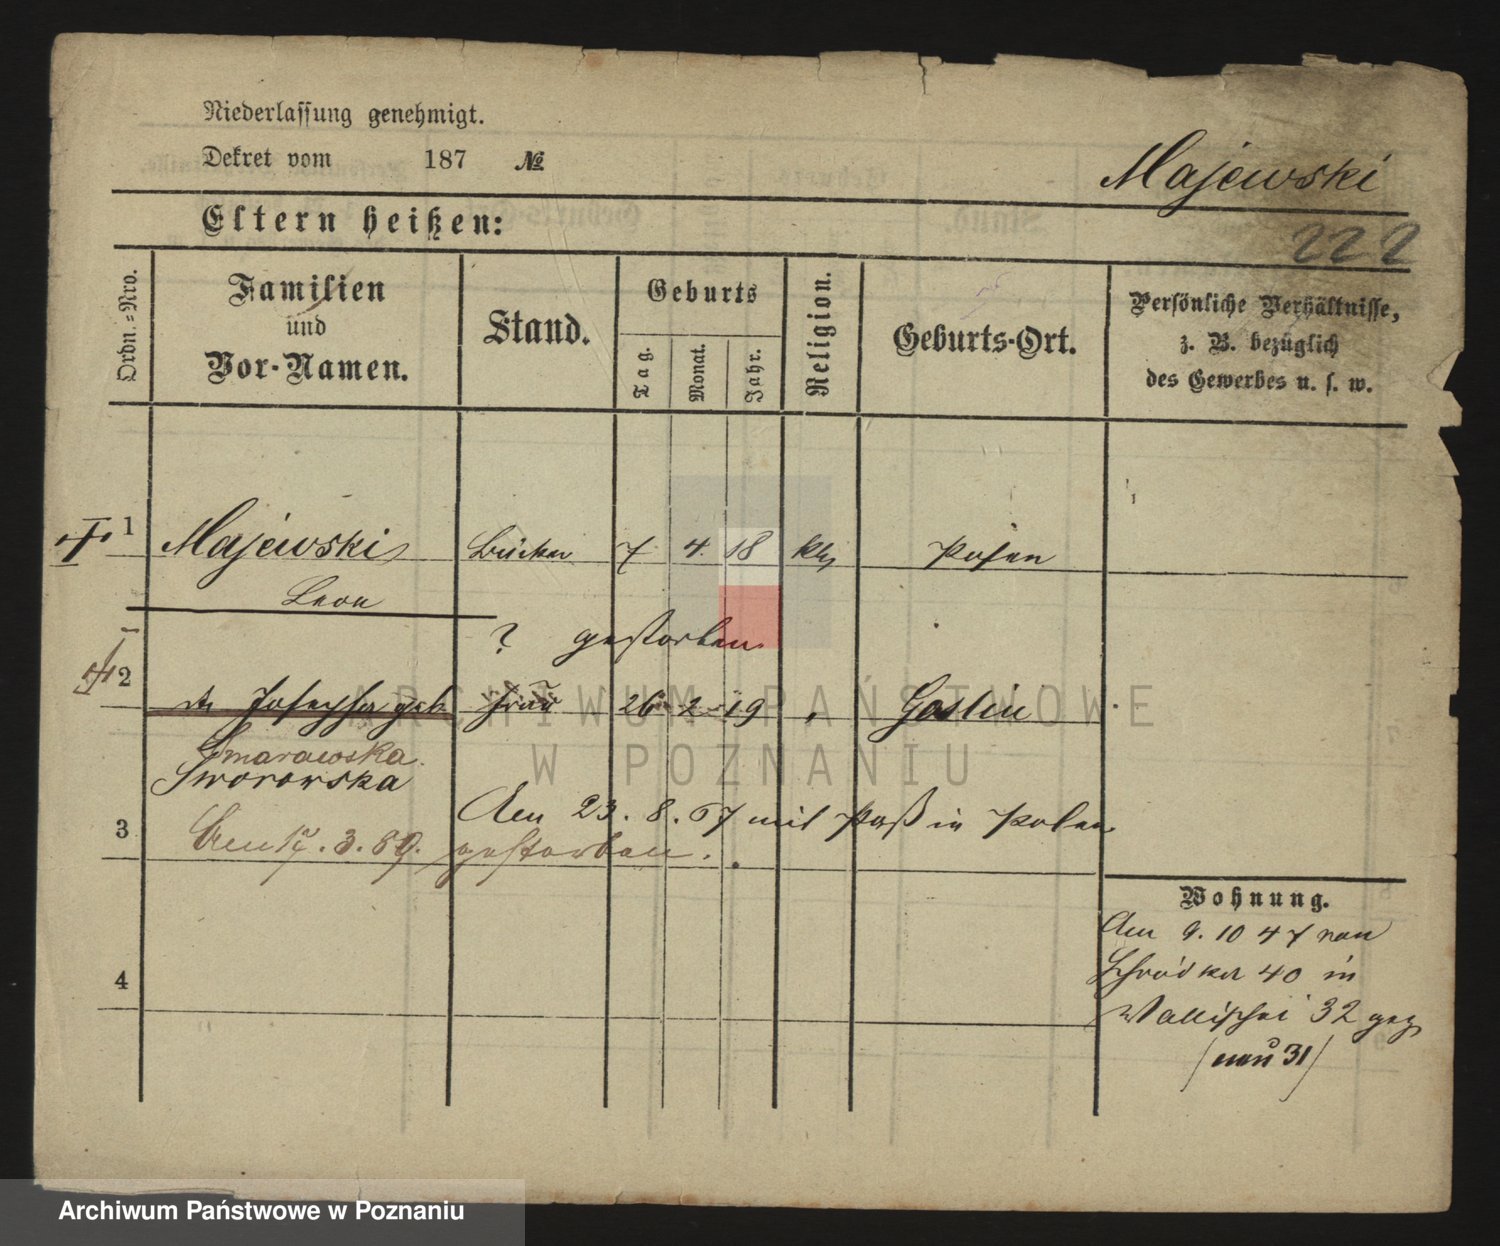 Niederlassung genehmigt.
Dekret vom 187 №
Majewski
Eltern heißen:
222
Ordn.-Nro.
Familien
und
Vor-Namen.
Stand.
Geburts
Tag.
Monat.
Jahr.
Religion.
Geburts-Ort.
Persönliche Verhältnisse,
z. B. bezüglich
des Gewerbes u. s. w.
1 Majewski 7. 4. 18 kth Posen
Leon
? gestorben
2 Josepha geb. Frau 26 2 19 " Goslin
Smarawska.
Sworowska
Am 23. 8. 67 mit Paß in Polen
3 Am 17. 3. 69. gestorben.
Wohnung.
Am 9. 10 47 von
Schrodka 40 in
4 Wallischei 32 gez
(neu 31)
ARCHIWUM PAŃSTWOWE
W POZNANIU
Archiwum Państwowe w Poznaniu